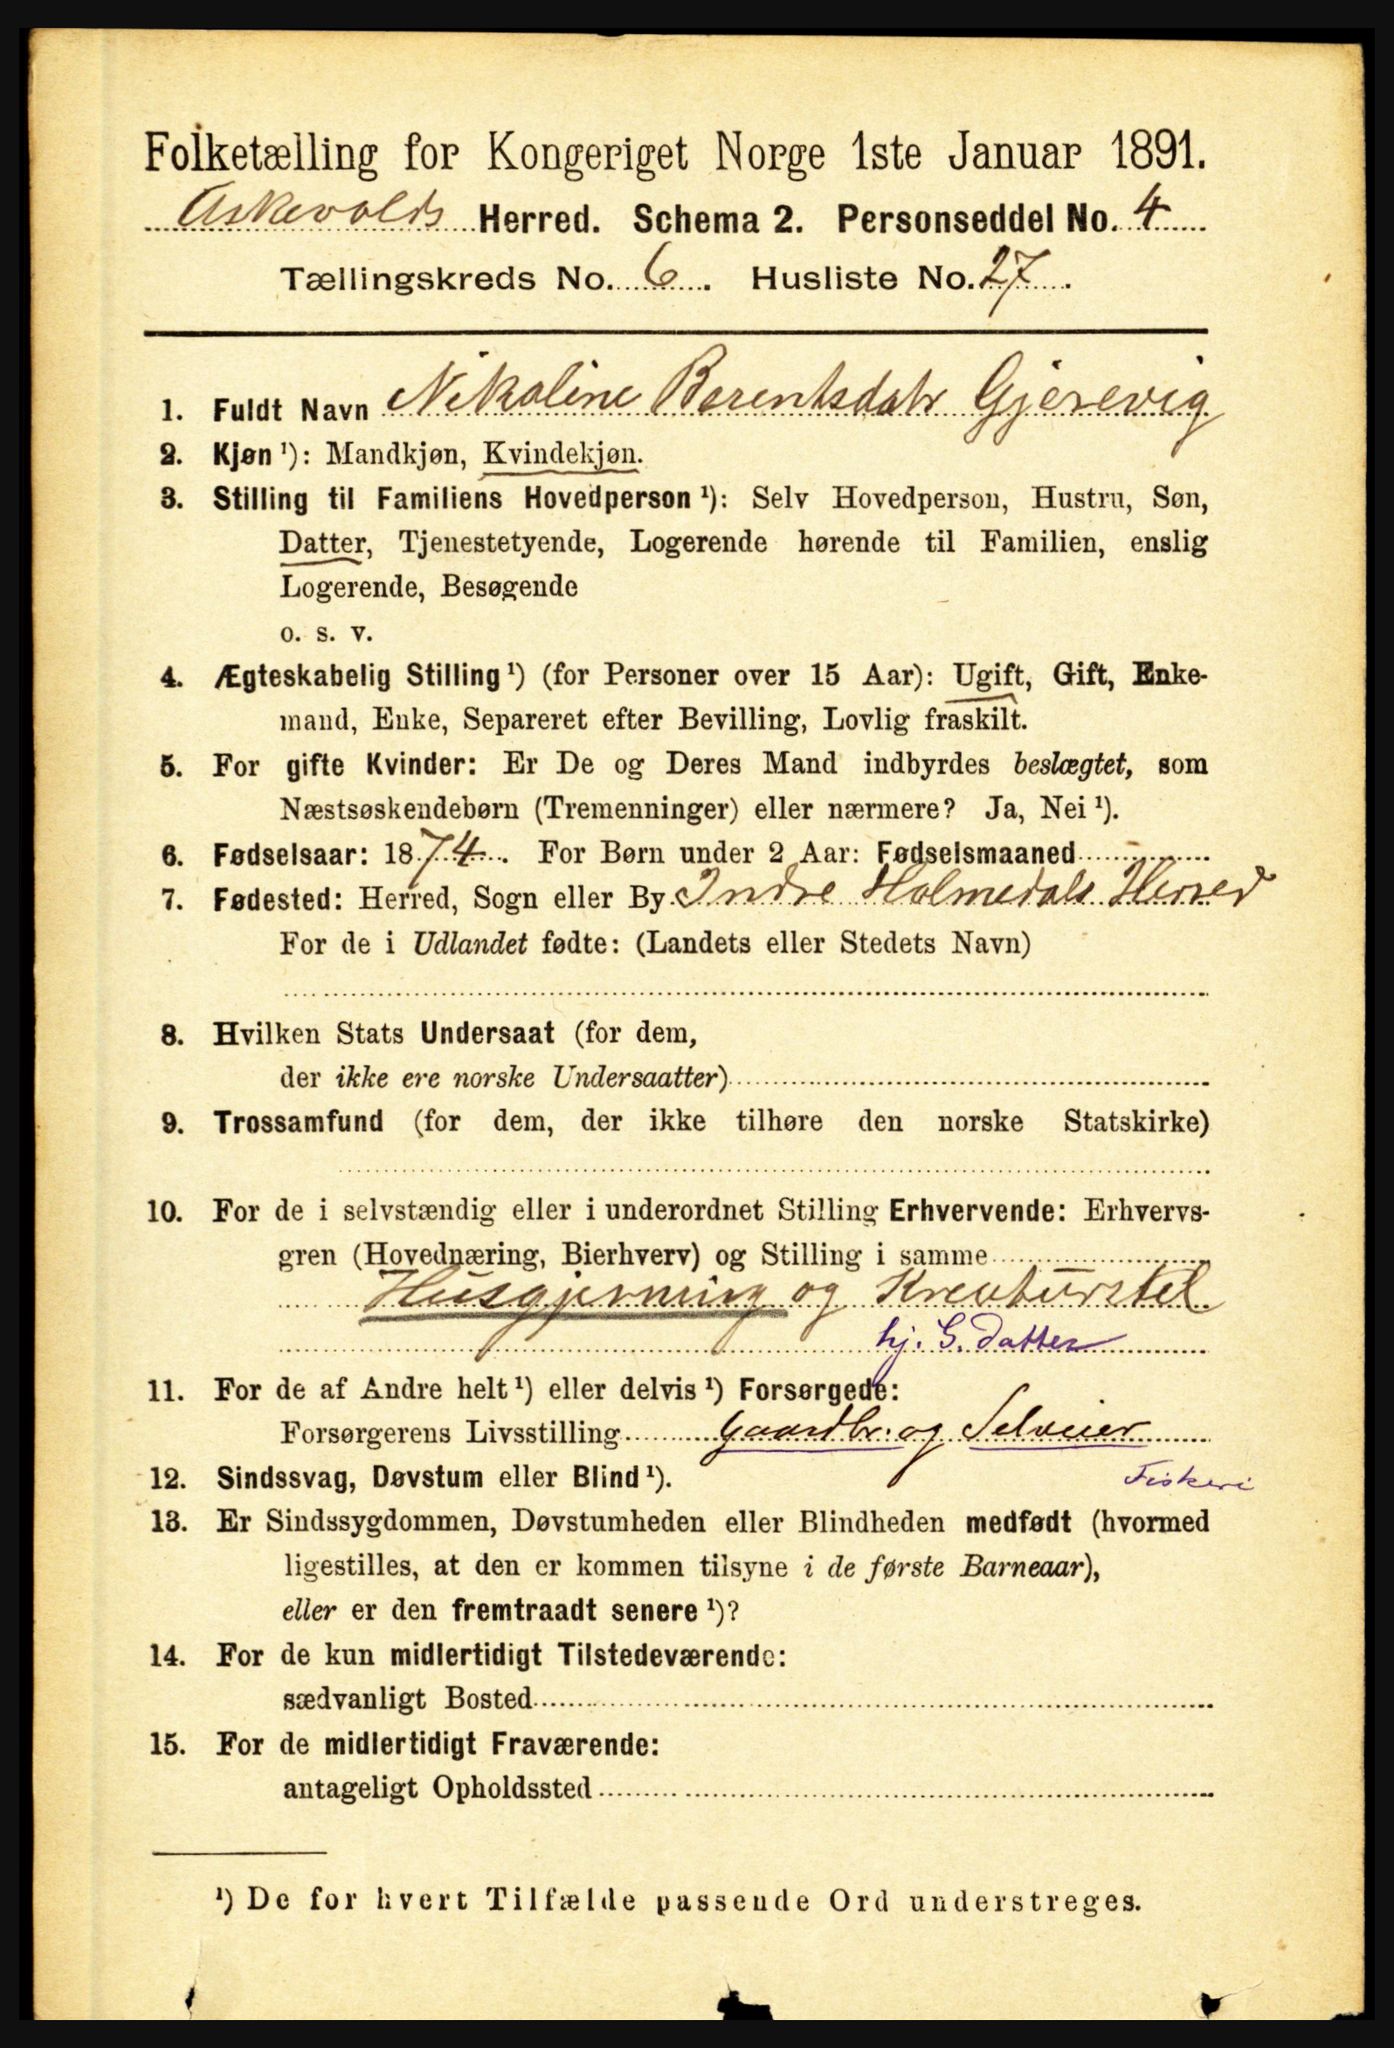 Folketælling for Kongeriget Norge 1ste Januar 1891.
Askevolds Herred. Schema 2. Personseddel No. 4
Tællingskreds No. 6. Husliste No. 27.
1. Fuldt Navn Nikoline Berentsdatr Gjerevig
2. Kjøn ¹): Mandkjøn, Kvindekjøn.
3. Stilling til Familiens Hovedperson ¹): Selv Hovedperson, Hustru, Søn,
Datter, Tjenestetyende, Logerende hørende til Familien, enslig
Logerende, Besøgende
o. s. v.
4. Ægteskabelig Stilling ¹) (for Personer over 15 Aar): Ugift, Gift, Enke-
mand, Enke, Separeret efter Bevilling, Lovlig fraskilt.
5. For gifte Kvinder: Er De og Deres Mand indbyrdes beslægtet, som
Næstsøskendebørn (Tremenninger) eller nærmere? Ja, Nei ¹).
6. Fødselsaar: 1874. For Børn under 2 Aar: Fødselsmaaned
7. Fødested: Herred, Sogn eller By Indre Holmedals Herred
For de i Udlandet fødte: (Landets eller Stedets Navn)
8. Hvilken Stats Undersaat (for dem,
der ikke ere norske Undersaatter)
9. Trossamfund (for dem, der ikke tilhøre den norske Statskirke)
10. For de i selvstændig eller i underordnet Stilling Erhvervende: Erhvervs-
gren (Hovednæring, Bierhverv) og Stilling i samme
Husgjerning og Kreaturstel
hj. G. Datter
11. For de af Andre helt ¹) eller delvis ¹) Forsørgede:
Forsørgerens Livsstilling Gaardbr. og Selveier
Fiskeri
12. Sindssvag, Døvstum eller Blind ¹).
13. Er Sindssygdommen, Døvstumheden eller Blindheden medfødt (hvormed
ligestilles, at den er kommen tilsyne i de første Barneaar),
eller er den fremtraadt senere ¹)?
14. For de kun midlertidigt Tilstedeværende:
sædvanligt Bosted
15. For de midlertidigt Fraværende:
antageligt Opholdssted
¹) De for hvert Tilfælde passende Ord understreges.